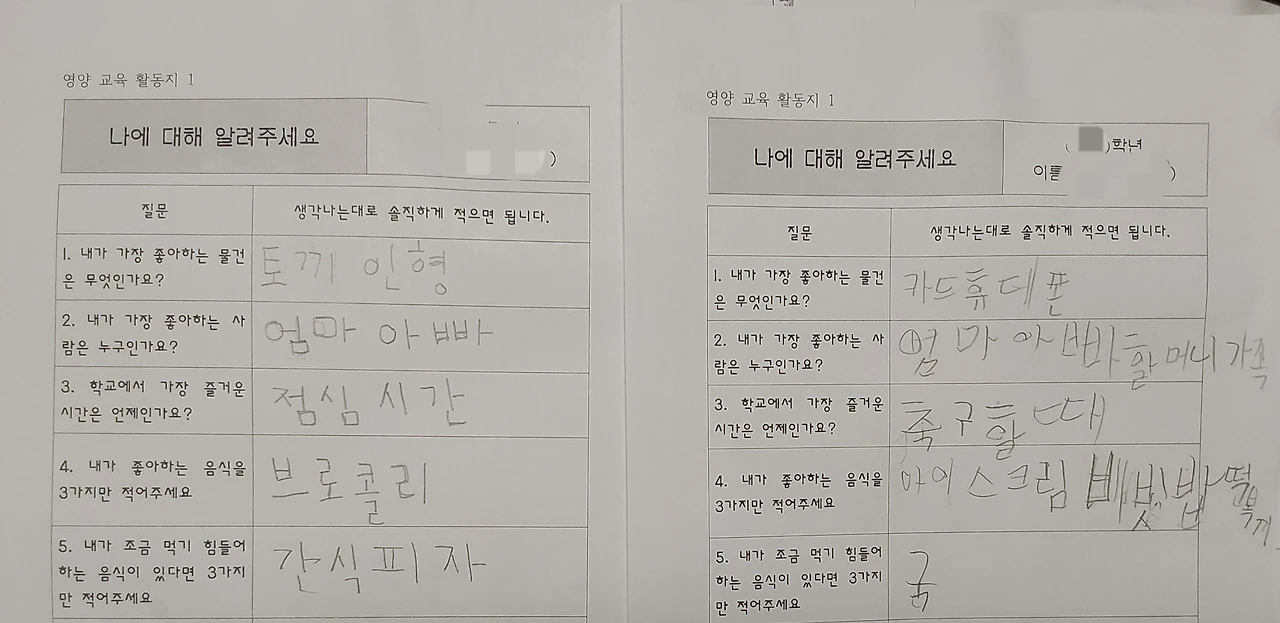 영양 교육 활동지 1
나에 대해 알려주세요
)
질문
생각나는대로 솔직하게 적으면 됩니다.
1. 내가 가장 좋아하는 물건
은 무엇인가요?
토끼 인형
2. 내가 가장 좋아하는 사
람은 누구인가요?
엄마 아빠
3. 학교에서 가장 즐거운
시간은 언제인가요?
점심 시간
4. 내가 좋아하는 음식을
3가지만 적어주세요
브로콜리
5. 내가 조금 먹기 힘들어
하는 음식이 있다면 3가지
만 적어주세요
간식피자
영양 교육 활동지 1
나에 대해 알려주세요
( )학년
이름 )
질문
생각나는대로 솔직하게 적으면 됩니다.
1. 내가 가장 좋아하는 물건
은 무엇인가요?
카드휴대폰
2. 내가 가장 좋아하는 사
람은 누구인가요?
엄마 아빠할머니가족
3. 학교에서 가장 즐거운
시간은 언제인가요?
축구할때
4. 내가 좋아하는 음식을
3가지만 적어주세요
아이스크림
5. 내가 조금 먹기 힘들어
하는 음식이 있다면 3가지
만 적어주세요